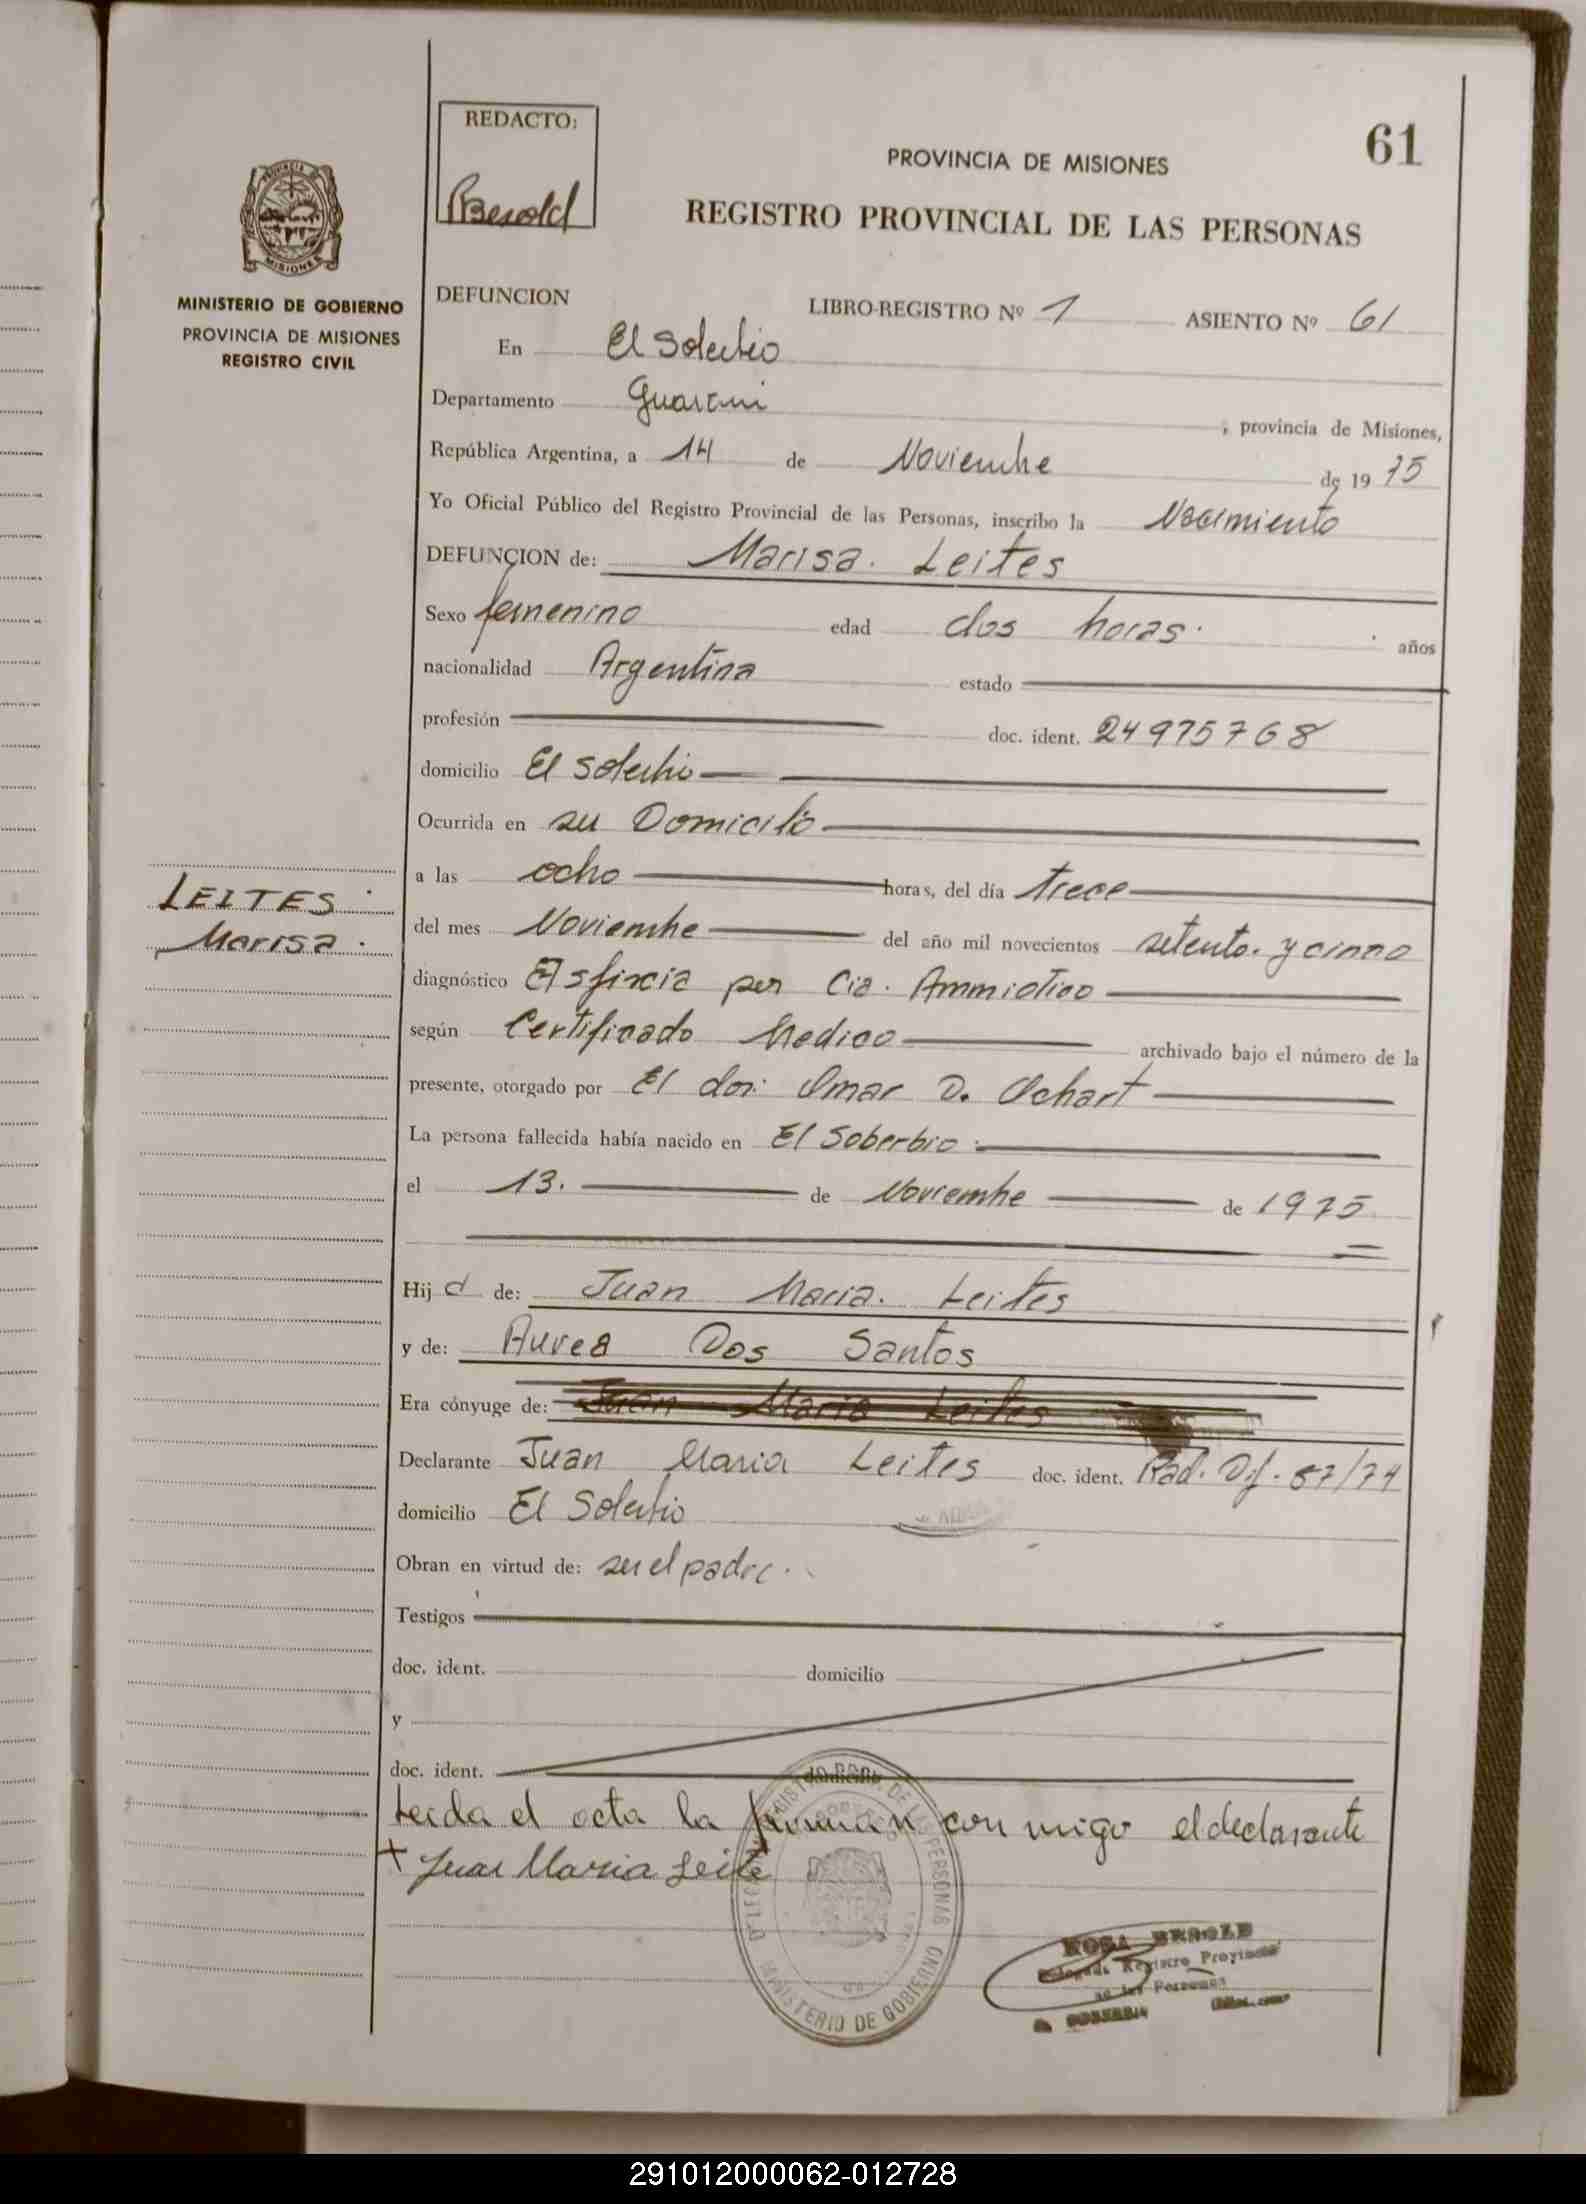 61
REDACTO:
Besold
PROVINCIA DE MISIONES
REGISTRO PROVINCIAL DE LAS PERSONAS
PROVINCIA DE
MISIONES
MINISTERIO DE GOBIERNO
PROVINCIA DE MISIONES
REGISTRO CIVIL
DEFUNCION LIBRO-REGISTRO Nº 1 ASIENTO Nº 61
En El Soberbio
Departamento Guarani , provincia de Misiones,
República Argentina, a 14 de Noviembre de 19 75
Yo Oficial Público del Registro Provincial de las Personas, inscribo la Nacimiento
DEFUNCION de: Marisa. Leites
Sexo femenino edad dos horas. años
nacionalidad Argentina estado
profesión doc. ident. 24975768
domicilio El Soberbio
Ocurrida en su Domicilio
a las ocho horas, del día trece
LEITES
Marisa.
del mes Noviembre del año mil novecientos setenta y cinco
diagnóstico Asfixcia por Cia. Ammiotico
según Certificado Medico archivado bajo el número de la
presente, otorgado por El dor: Omar D. Ochart
La persona fallecida había nacido en El Soberbio
el 13. de Noviembre de 1975
Hij a de: Juan Maria. Leites
y de: Aurea Dos Santos
Era cónyuge de: Juan Maria Leites
Declarante Juan Maria Leites doc. ident. Rad. Def. 57/74
domicilio El Soberbio
Obran en virtud de: ser el padre.
Testigos
doc. ident. domicilio
y
doc. ident. domicilio
Leida el acta la firman con migo el declarante
+ Juan Maria Leite
MINISTERIO DE GOBIERNO
ROSA BESOLD
Delegada Registro Provincial
de las Personas
EL SOBERBIO
291012000062-012728